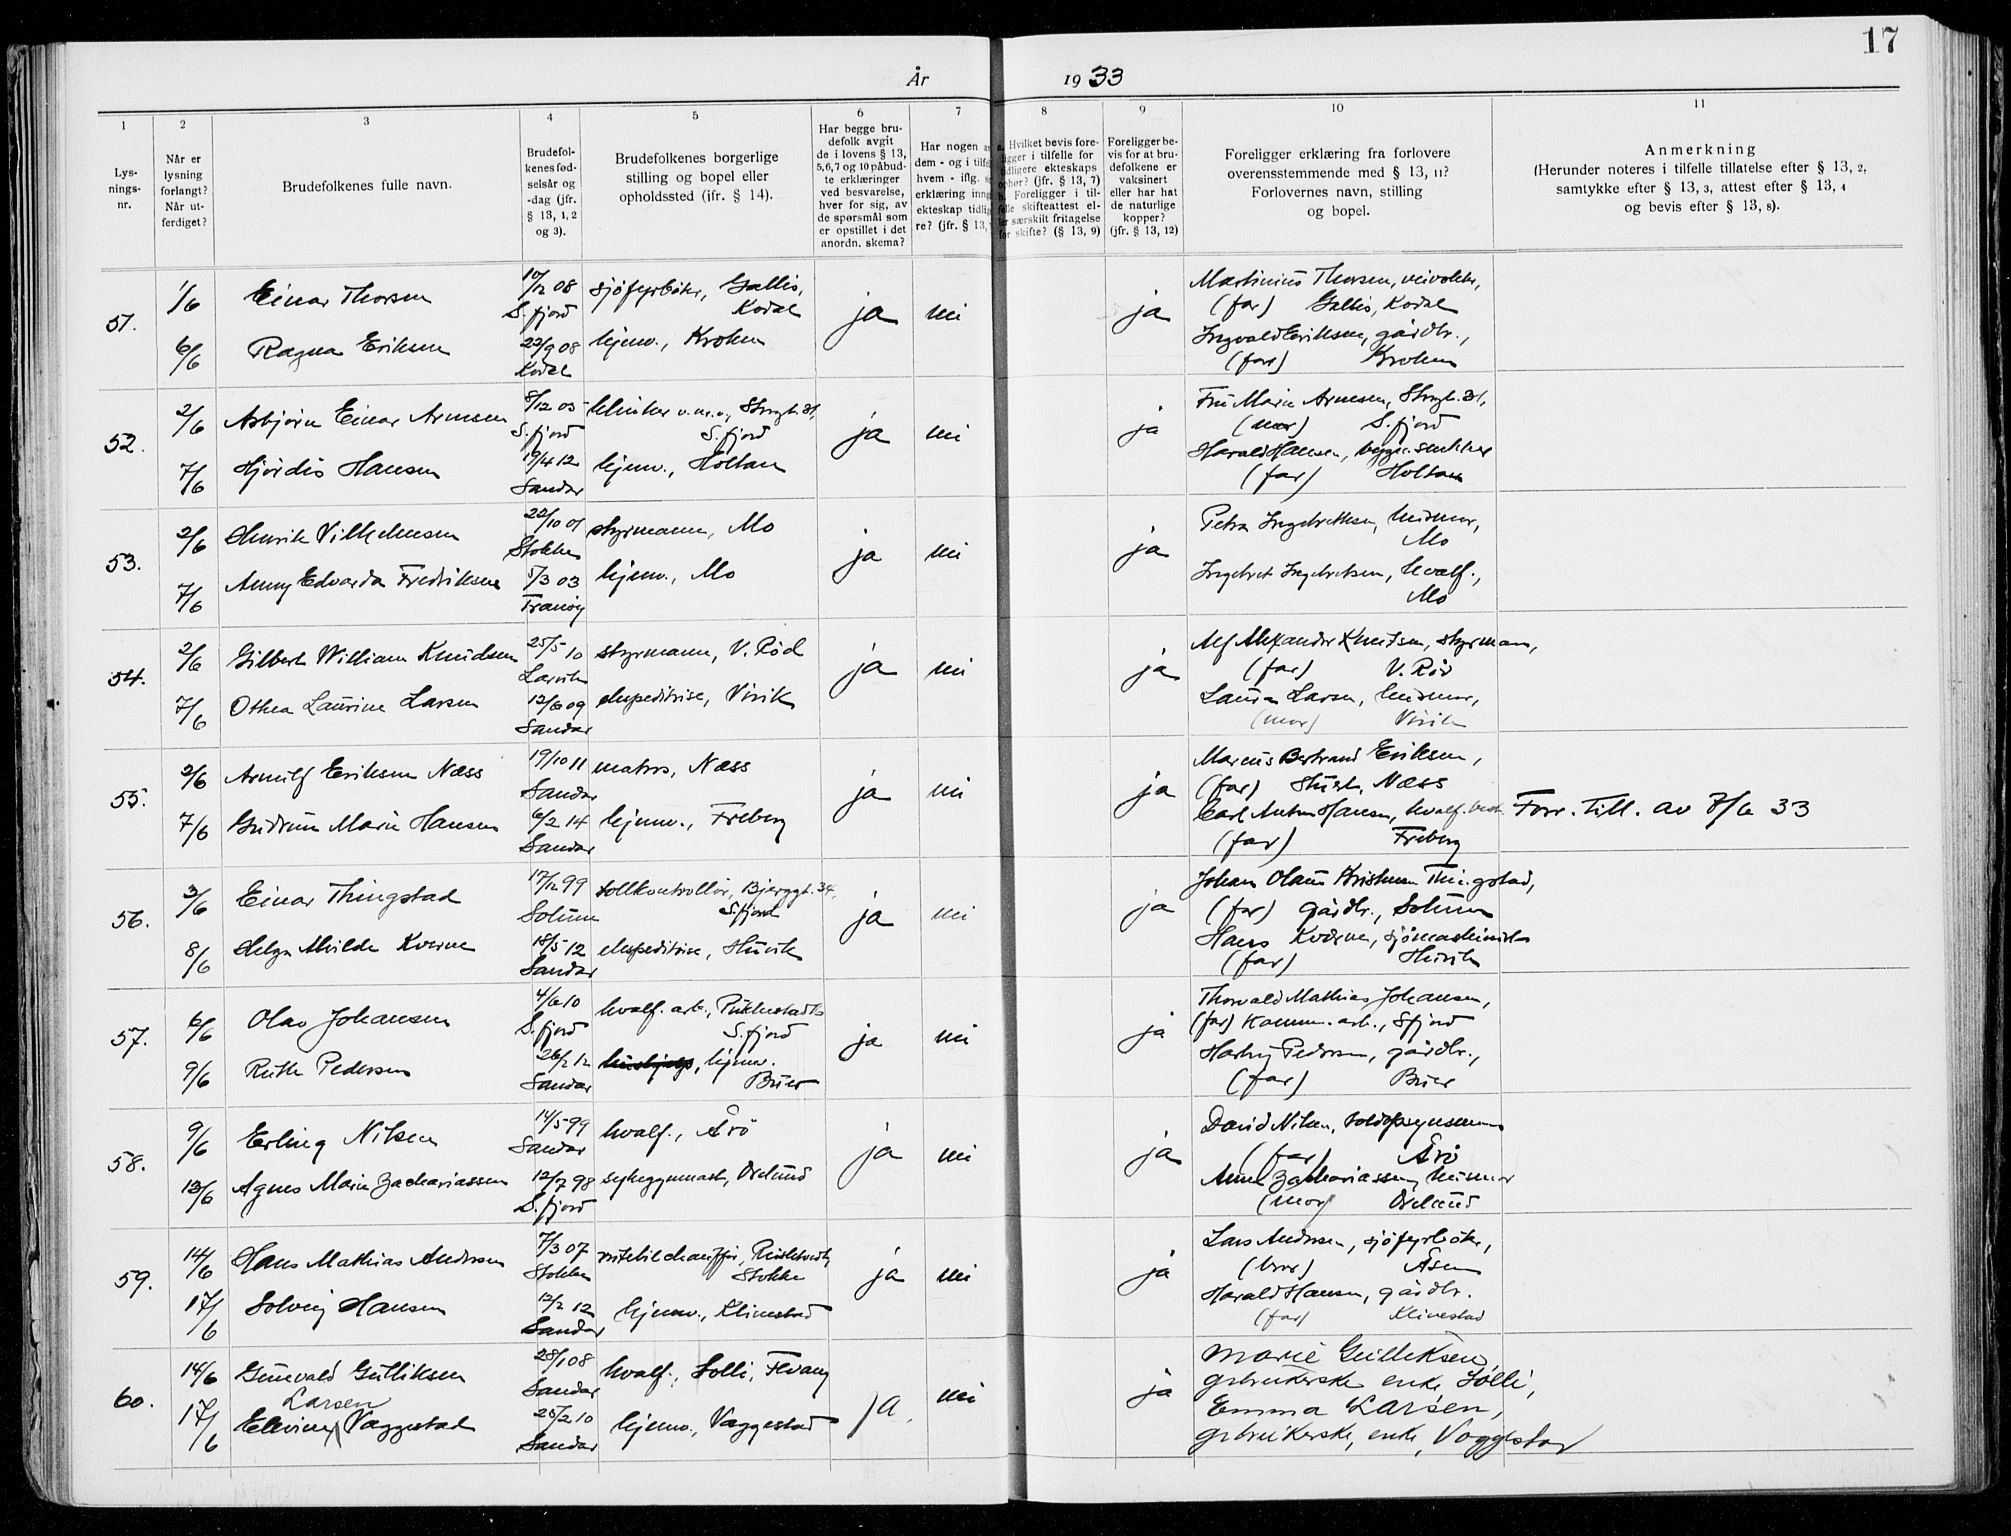 17
År 1933
1 2 3 4 5 6 7 8 9 10 11
Lysningsnr.
Når er lysning forlangt? Når utferdiget?
Brudefolkenes fulle navn.
Brudefolkenes fødselsår og -dag (jfr. § 13, 1, 2 og 3).
Brudefolkenes borgerlige stilling og bopel eller opholdssted (jfr. § 14).
Har begge brudefolk avgit de i lovens § 13, 5,6,7 og 10 påbudte erklæringer ved besvarelse, hver for sig, av de spørsmål som er opstillet i det anordn. skema?
Har nogen
dem - og i
hvem - iflg.
erklæring
ekteskap
re? (jfr. § 13,
Hvilket bevis foreligger i tilfelle for tidligere ekteskaps ophør? (jfr. § 13, 7)
Foreligger i tilfelle skifteattest eller særskilt fritagelse for skifte? (§ 13, 9)
Foreligger bevis for at brudefolkene er vaksinert eller har hat de naturlige kopper? (jfr. § 13, 12)
Foreligger erklæring fra forlovere overensstemmende med § 13, 11? Forlovernes navn, stilling og bopel.
Anmerkning
(Herunder noteres i tilfelle tillatelse efter § 13, 2, samtykke efter § 13, 3, attest efter § 13, 4 og bevis efter § 13, 8).
51.
1/6 Einar Thorsen 10/12 08 S.fjord sjøfyrbøter, Gallis, Kodal ja nei ja Martinius Thorsen, veivokter,
(far) Gallis, Kodal
6/6 Ragna Eriksen 22/9 08 Kodal hjemv., Kroken Ingvald Eriksen, gårdbr.,
(far) Kroken
52.
2/6 Asbjørn Einar Arnesen 8/12 05 S.fjord S.fjord ja nei ja Fru Marie Arnesen,
(mor) S.fjord
7/6 Hjørdis Hansen 19/4 12 Sandar hjemv., Holtan Harald Hansen,
(far) Holtan
53.
2/6 Henrik Vilhelmsen 22/10 01 Stokke styrmann, Mo ja nei ja Petra Ingebrethsen, husmor,
Mo
7/6 Anny Edvarda Fredriksen 5/3 03 Tranøy hjemv., Mo Ingebret Ingebretsen, hvalf.,
Mo
54.
2/6 Gilbert William Knudsen 25/5 10 Larvik styrmann, V. Rød ja nei ja Alf Alexander Knutsen, styrman,
(far) V. Rød
7/6 Othea Laurine Larsen 12/6 09 Sandar ekspeditrise, Virik Laura Larsen, husmor,
(mor) Virik
55.
2/6 Arnulf Eriksen Næss 19/10 11 Sandar matros, Næss ja nei ja Marcus Bertrand Eriksen,
(far) Næss
7/6 Gudrun Marie Hansen 6/2 14 Sandar hjemv., Freberg Carl Anton Hansen, hvalf.
(far) Freberg
Forr. Till. av 7/6 33
56.
3/6 Einar Thingstad 17/12 99 Solum tollkontrollør, Bjerggt. 34, S.fjord ja nei ja Johan Olaus Kristensen Thingstad,
(far) gårdbr., Solum
8/6 Helga Milde Kverne 18/5 12 Sandar ekspeditrise, Huvik Hans Kværne, sjømaskinist
(far) Huvik
57.
6/6 Olav Johansen 4/6 10 S.fjord hvalf. arb., S.fjord ja nei ja Thorvald Mathias Johansen,
(far) Komm. arb., Sfjord
9/6 Ruth Pedersen 26/2 12 Sandar hjemv. Buer Pedersen, gårdbr.,
(far) Buer
58.
9/6 Erling Nilsen 14/5 99 Sandar hvalf., Årø ja nei ja David Nilsen,
(far) Årø
13/6 Agnes Marie Zachariassen 12/7 98 S.fjord sykegymnast, Ørelund Zachariassen, husmor
(mor) Ørelund
59.
14/6 Hans Mathias Andersen 7/3 07 Stokke rutebilchauffør, Stokke ja nei ja Lars Andersen, sjøfyrbøter,
(bror) Åsen
17/6 Solveig Hansen 12/2 12 Sandar hjemv., Klinestad Harald Hansen, gårdbr.
(far) Klinestad
60.
14/6 Gunvald Gulliksen 28/1 08 Sandar hvalf., Solli, Fevang ja nei ja Marie Gulliksen,
grbrukerske enke Solli,
Larsen
17/6 Ellevine Vaggestad 25/2 10 Sandar hjemv., Vaggestad Emma Larsen,
grbrukerske, enke, Vaggestad